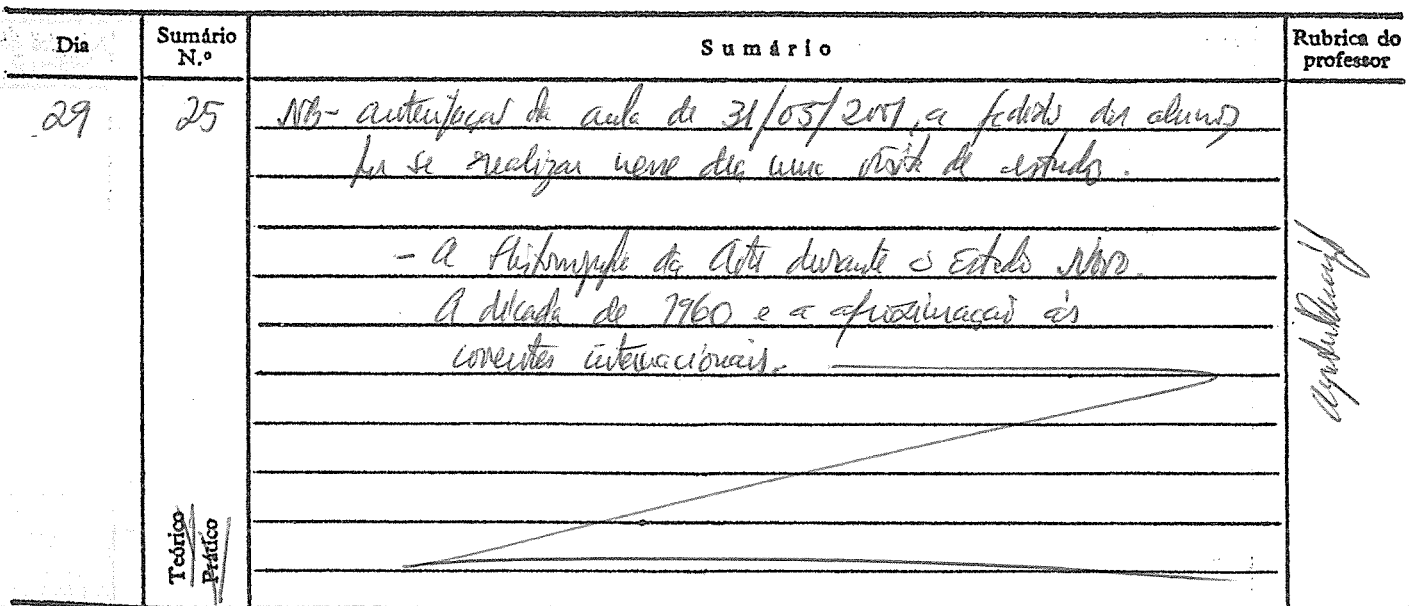 Dia
Sumário N.º
Sumário
Rubrica do professor
29
25
NB- antecipação da aula de 31/05/2001, a pedido dos alunos
por se realizar nesse dia uma visita de estudo.
- A Historiografia da Arte durante o Estado Novo.
A década de 1960 e a aproximação às
correntes internacionais.
Teórico
Prático